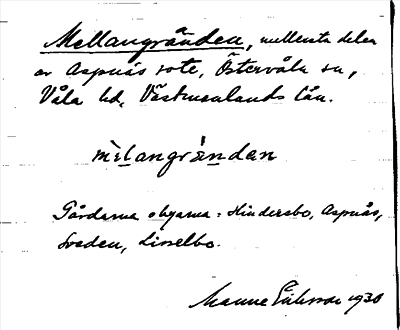 Mellangränden, mellersta delen
av Aspnäs rote, Östervåla sn,
Våla hd, Västmanlands län.
mèlangrándan
Gårdarna o byarna: Hindersbo, Aspnäs,
Sveden, Lisselbo.
Manne Eriksson 1930